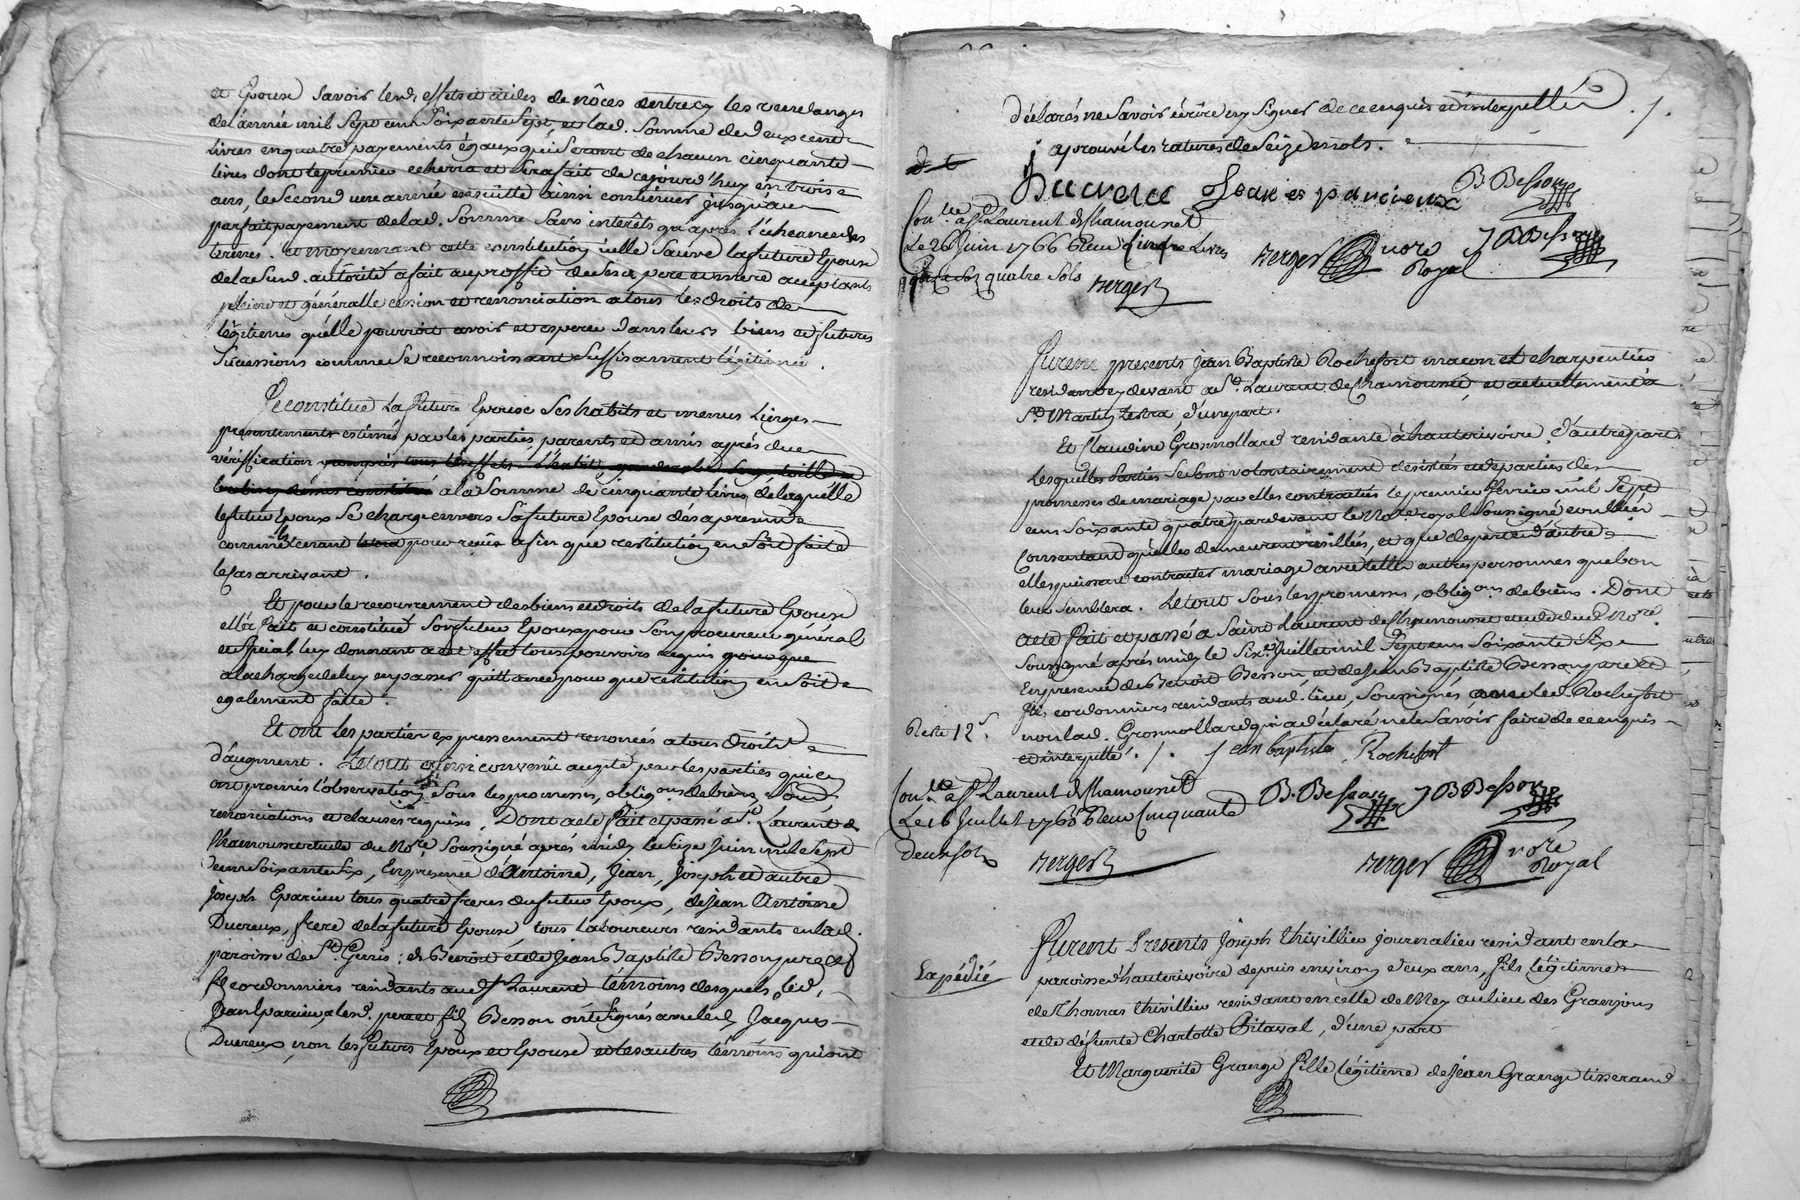 et Epouse savoir lesd. effets et utiles de nôces d'entre cy les vendanges
de l'année mil sept cent soixante sept, et lad. somme de deux cent
livres en quatre payements égaux qui seront de chacun cinquante
livres dont le premier echerra et sera fait de ce jourd'huy en trois
ans, le second une année ensuitte ainsi continuer jusqu'au
parfait payement de lad. somme sans interêts qu'après l'echeance des
termes. et moyennant cette constitution icelle sauve la future Epouse
de la susd. autorité a fait au proffit de sesd. pere et mere acceptants
pleine et générale cession et renonciation a tous les droits de
légitimes qu'elle pourroit avoir et esperer dans leurs biens et futures
sucessions comme se reconnoissant suffisament légitimée.
Se constitue la future Epouse ses habits et menus linges
presentements estimés par les parties, parents et amis après due
vérification
a la somme de cinquante livres, de laquélle
le futur Epoux se charge envers sa future Epouse dés apresent
comme tenant pour reçus afin que restitution en soit faite
le cas arrivant.
Et pour le recouvrement des biens et droits de la future Epouse
ell'a fait et constitué son futur Epoux pour son procureur général
et spécial luy donnant a cet effet tous pouvoirs requis pour que
a la charge de luy en passer quittance pour que restitution en soit
egalement faitte.
Et ont les parties expressement renoncés a tous droits
d'augment. Le tout ainsi convenu acepté par les parties qui en
ont promis l'observation sous les promesses, oblig.ons de biens,
renonciations et clauses requises. Dont acte fait et passé a St. Laurent de
Chamousset etude du No.re soussigné après midy le seize juin mil sept
cent soixante six, En presence d'Antoine, Jean, Joseph et autre
Joseph Eparvier tous quatre freres du futur Epoux, de Jean Antoine
Ducreux, frere de la future Epouse, tous laboureurs residants en lad.
paroisse de St. Genis; de Benoît et de Jean Baptiste Besson pere et
fils cordonniers residants aud. St. Laurent témoins desquels, led.
Jean Eparvier, a lesd. pere et fils Besson ont signés avec led. Jacques
Ducreux, non les futurs Epoux et Epouse et les autres témoins qui ont
déclarés ne savoir écrire ny signer de ce enquis et interpellés ./.
aprouvé les ratures de seize mots.
Ducreux Jean eparvieux B. Besson
Con.lé a St. Laurent de Chamousset
Le 26 Juin 1766 Reçu cinq Livres
quatre sols Berger
Berger No.re Royal J B Besson
Furent presents Jean Baptiste Rochefort macon et charpentier
residant cy devant a St. Laurent de Chamousset et actuellement a
St. Martin Lestra d'une part.
Et Claudine Grosmollard residante à hauterivoire, d'autre part
Lesquelles parties se sont volontairement desistées et departies des
promesses de mariage par elles contractés le premier fevrier mil sept
cent soixante quatre par devant le No.re royal soussigné
Consentant qu'elles demeurent resillées, et que de part et d'autre
elles puissent contracter mariage avec telles autres personnes que bon
leur semblera. Le tout sous les promesses, oblig.ons de biens. Dont
acte fait et passé a Saint Laurent de Chamousset etude du No.re
soussigné après midy le six.e Juillet mil sept cent soixante six
En presence de Benoit Besson et de Jean Baptiste Besson pere et
fils cordonniers residants aud. lieu, soussignés avec led. Rochefort
non lad. Grosmollard qui a déclaré ne le savoir faire de ce enquis
et interpellé. /. Jean baptiste Rochefort
Reste 12 s
Con.lé a St. Laurent de Chamousset
Le 16 Juillet 1766 Reçu Cinquante
deux sols Berger
B. Besson J B Besson
Berger No.re Royal
Expédié
Furent Presents Joseph Thivillier journalier residant en la
paroisse d'hauterivoire depuis environ deux ans, fils légitime
de Thomas Thivillier residant en celle de Mey au lieu des Granjons
et de défunte Charlotte Pitaval, d'une part
Et Marguerite Grange fille légitime de Jean Grange tisserand